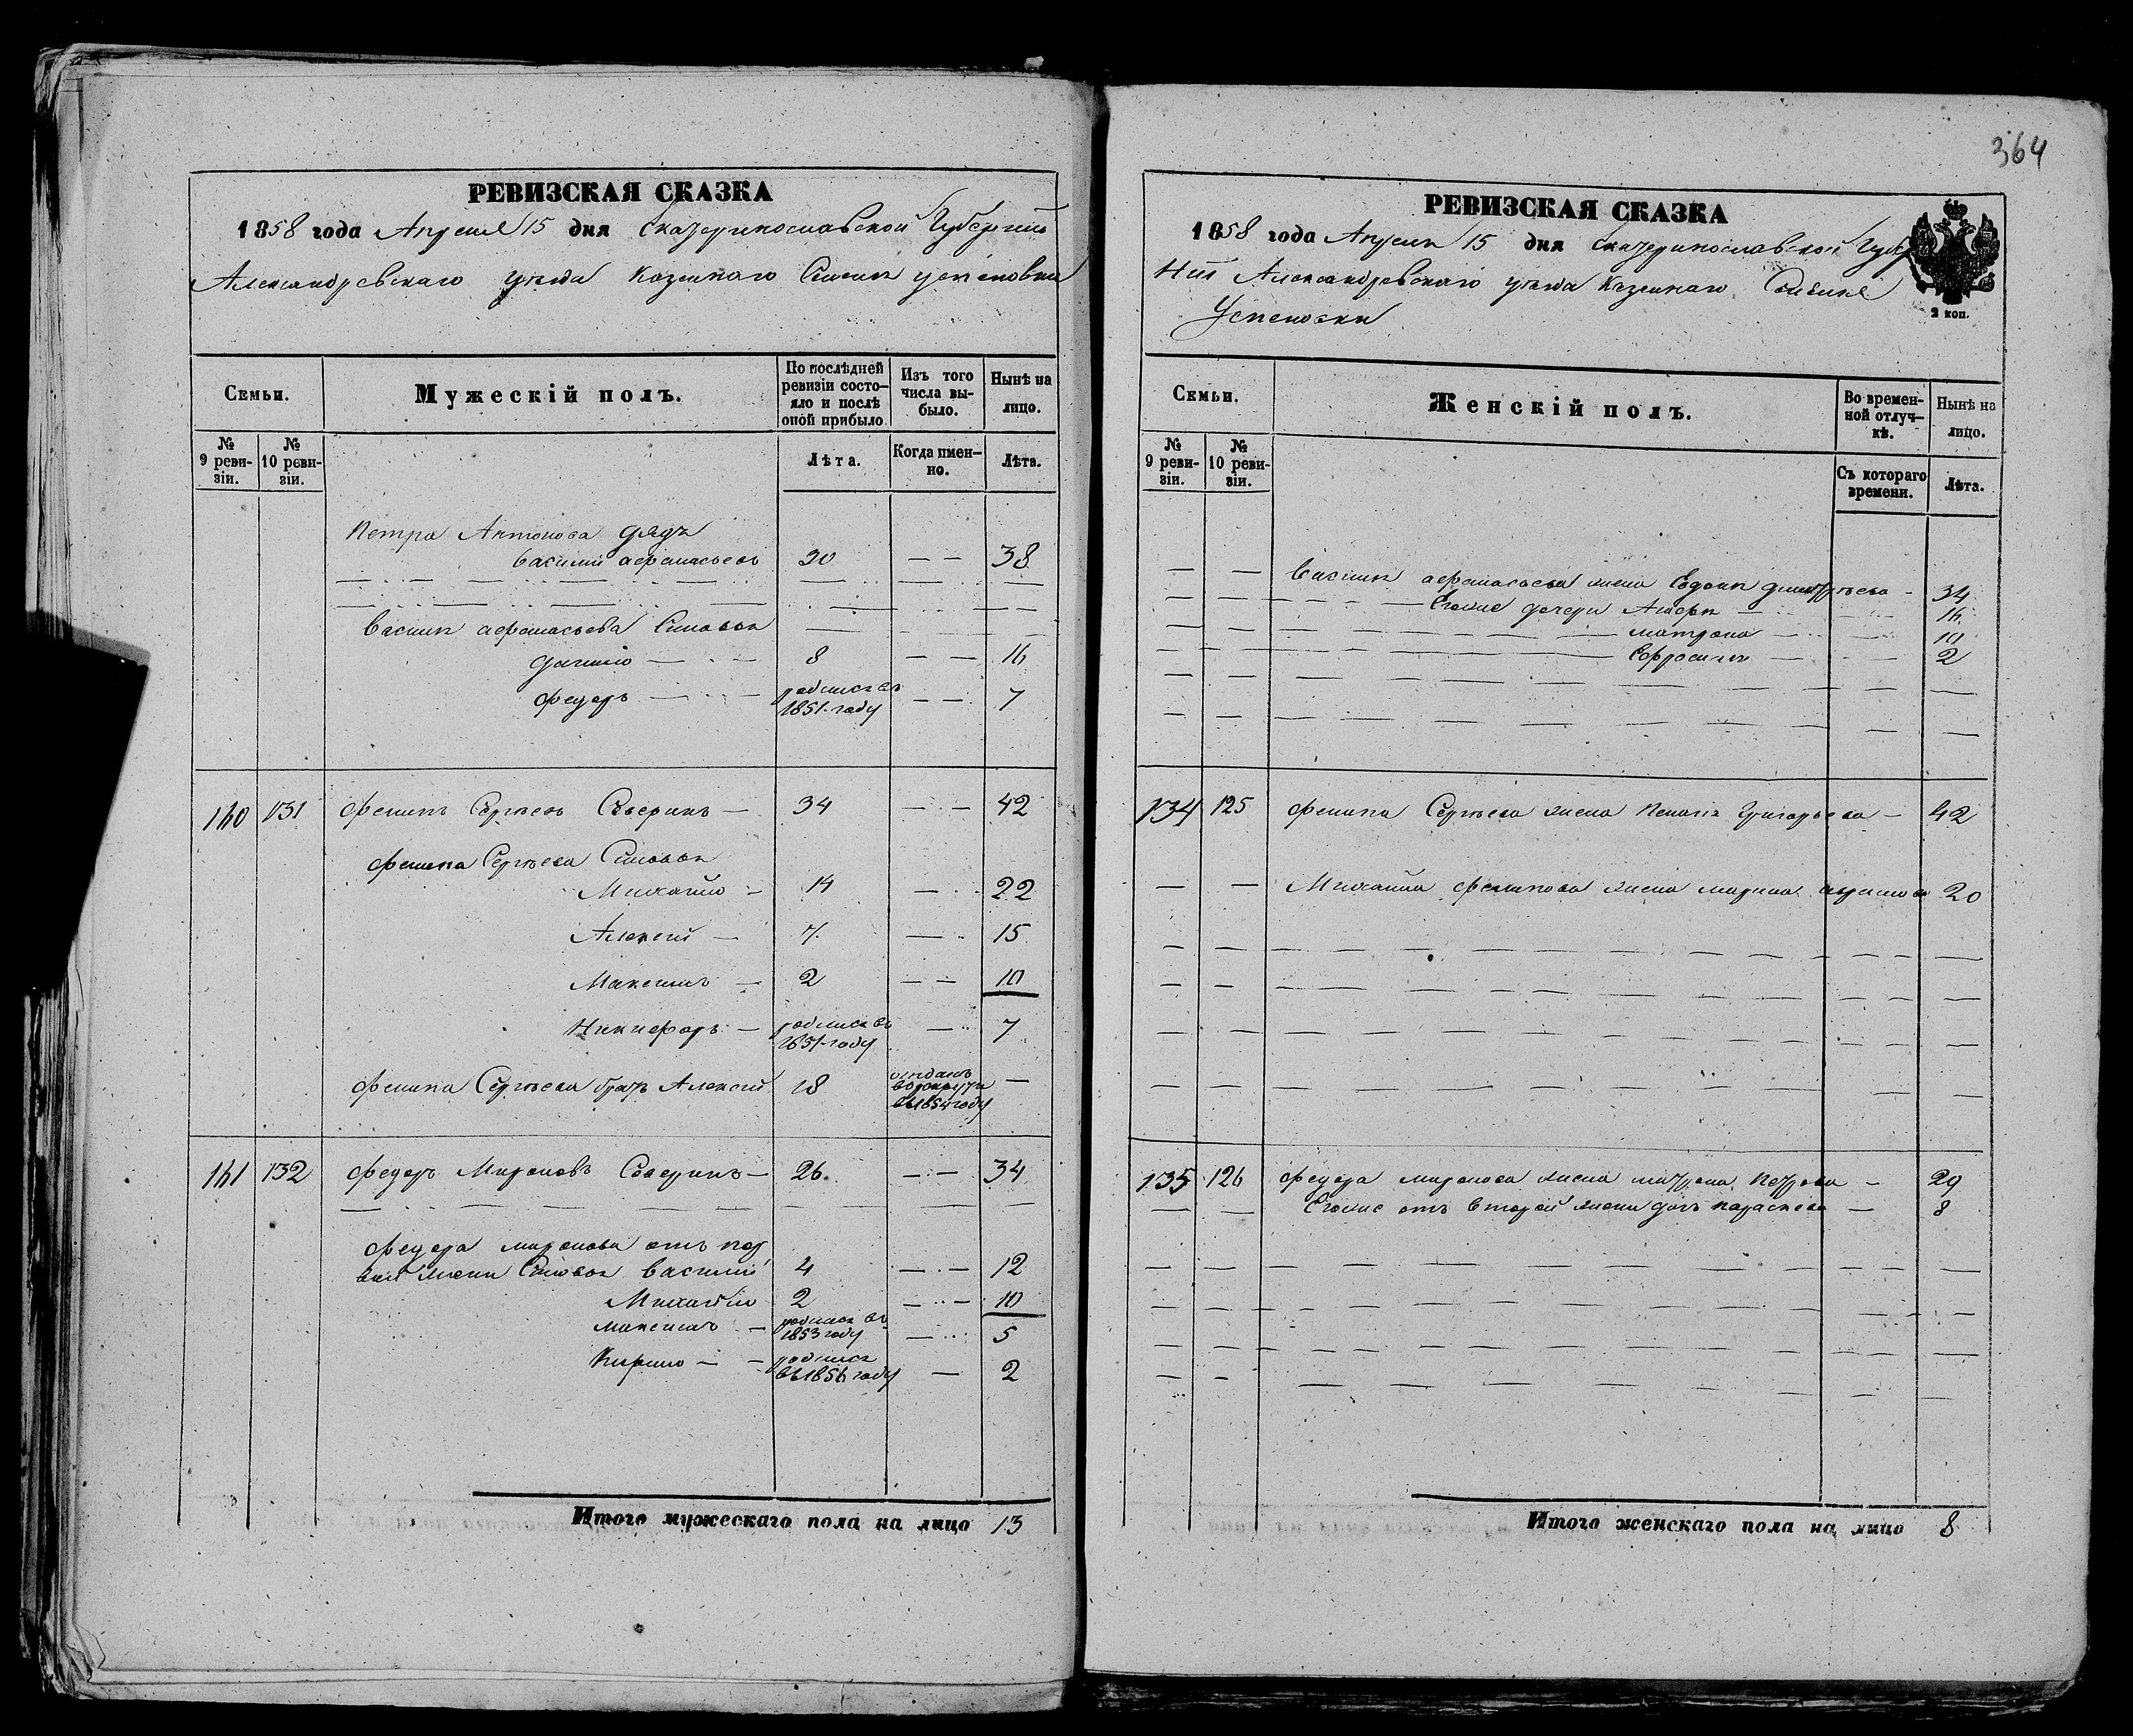 364
РЕВИЗСКАЯ СКАЗКА
1858 года Апреля 15 дня Екатеринославской Губернии
Александровскаго уезда Казеннаго Селенія Успеновки
Семьи.
Мужескій полъ.
По послѣдней ревизіи состо-
яло и послѣ оной прибыло
Изъ того числа вы-
было.
Нынѣ на лицо.
№ 9 реви-
зіи.
№ 10 реви-
зіи.
Лѣта.
Когда имен-
но.
Лѣта.
Петра Антонова дядя
Василий Афанасьевъ 30 — — 38
Василия Афанасьева Сыновья
Данило — 8 — — 16
Федоръ — родился въ 1851 году — — 7
160 131 Филипъ Сергѣевъ Северинъ — 34 — — 42
Филипа Сергѣева Сыновья
Михайло — 14 — 22
Алексей — 7 — 15
Максимъ — 2 — — 10
Никифоръ — родился въ 1851 году — 7
Филипа Сергѣева братъ Алексей 18 отданъ в рекруты въ 1854 году —
161 132 Федоръ Мироновъ Северинъ — 26. — — 34
Федора Миронова отъ пер
вой жены Сыновья Василий 4 — — 12
Михайло 2 — — 10
Максимъ — родился въ 1853 году — 5
Кирило — — родился въ 1856 году — 2
Итого мужескаго пола на лицо 13
РЕВИЗСКАЯ СКАЗКА
1858 года Апреля 15 дня Екатеринославской Губер
нии Александровскаго уезда Казеннаго Селения
Успеновки
2 коп.
Семьи.
Женскій полъ.
Во времен-
ной отлуч-
кѣ.
Нынѣ на лицо.
№ 9 реви-
зіи.
№ 10 реви-
зіи.
Съ котораго времени.
Лѣта.
Василия Афанасьева жена Евдокия Дмитриева — 34
Егоже дочери 16
Матрона — 10
Ефросинья — 2
134 125 Филипа Сергѣева жена Пелагия Григорьева — 42
— — Михайла Филипова жена Марина 20
135 126 Федора Миронова жена Матрона Петрова — 29
— — Егоже отъ второй жены дочь Параскева — 8
Итого женскаго пола на лицо 8